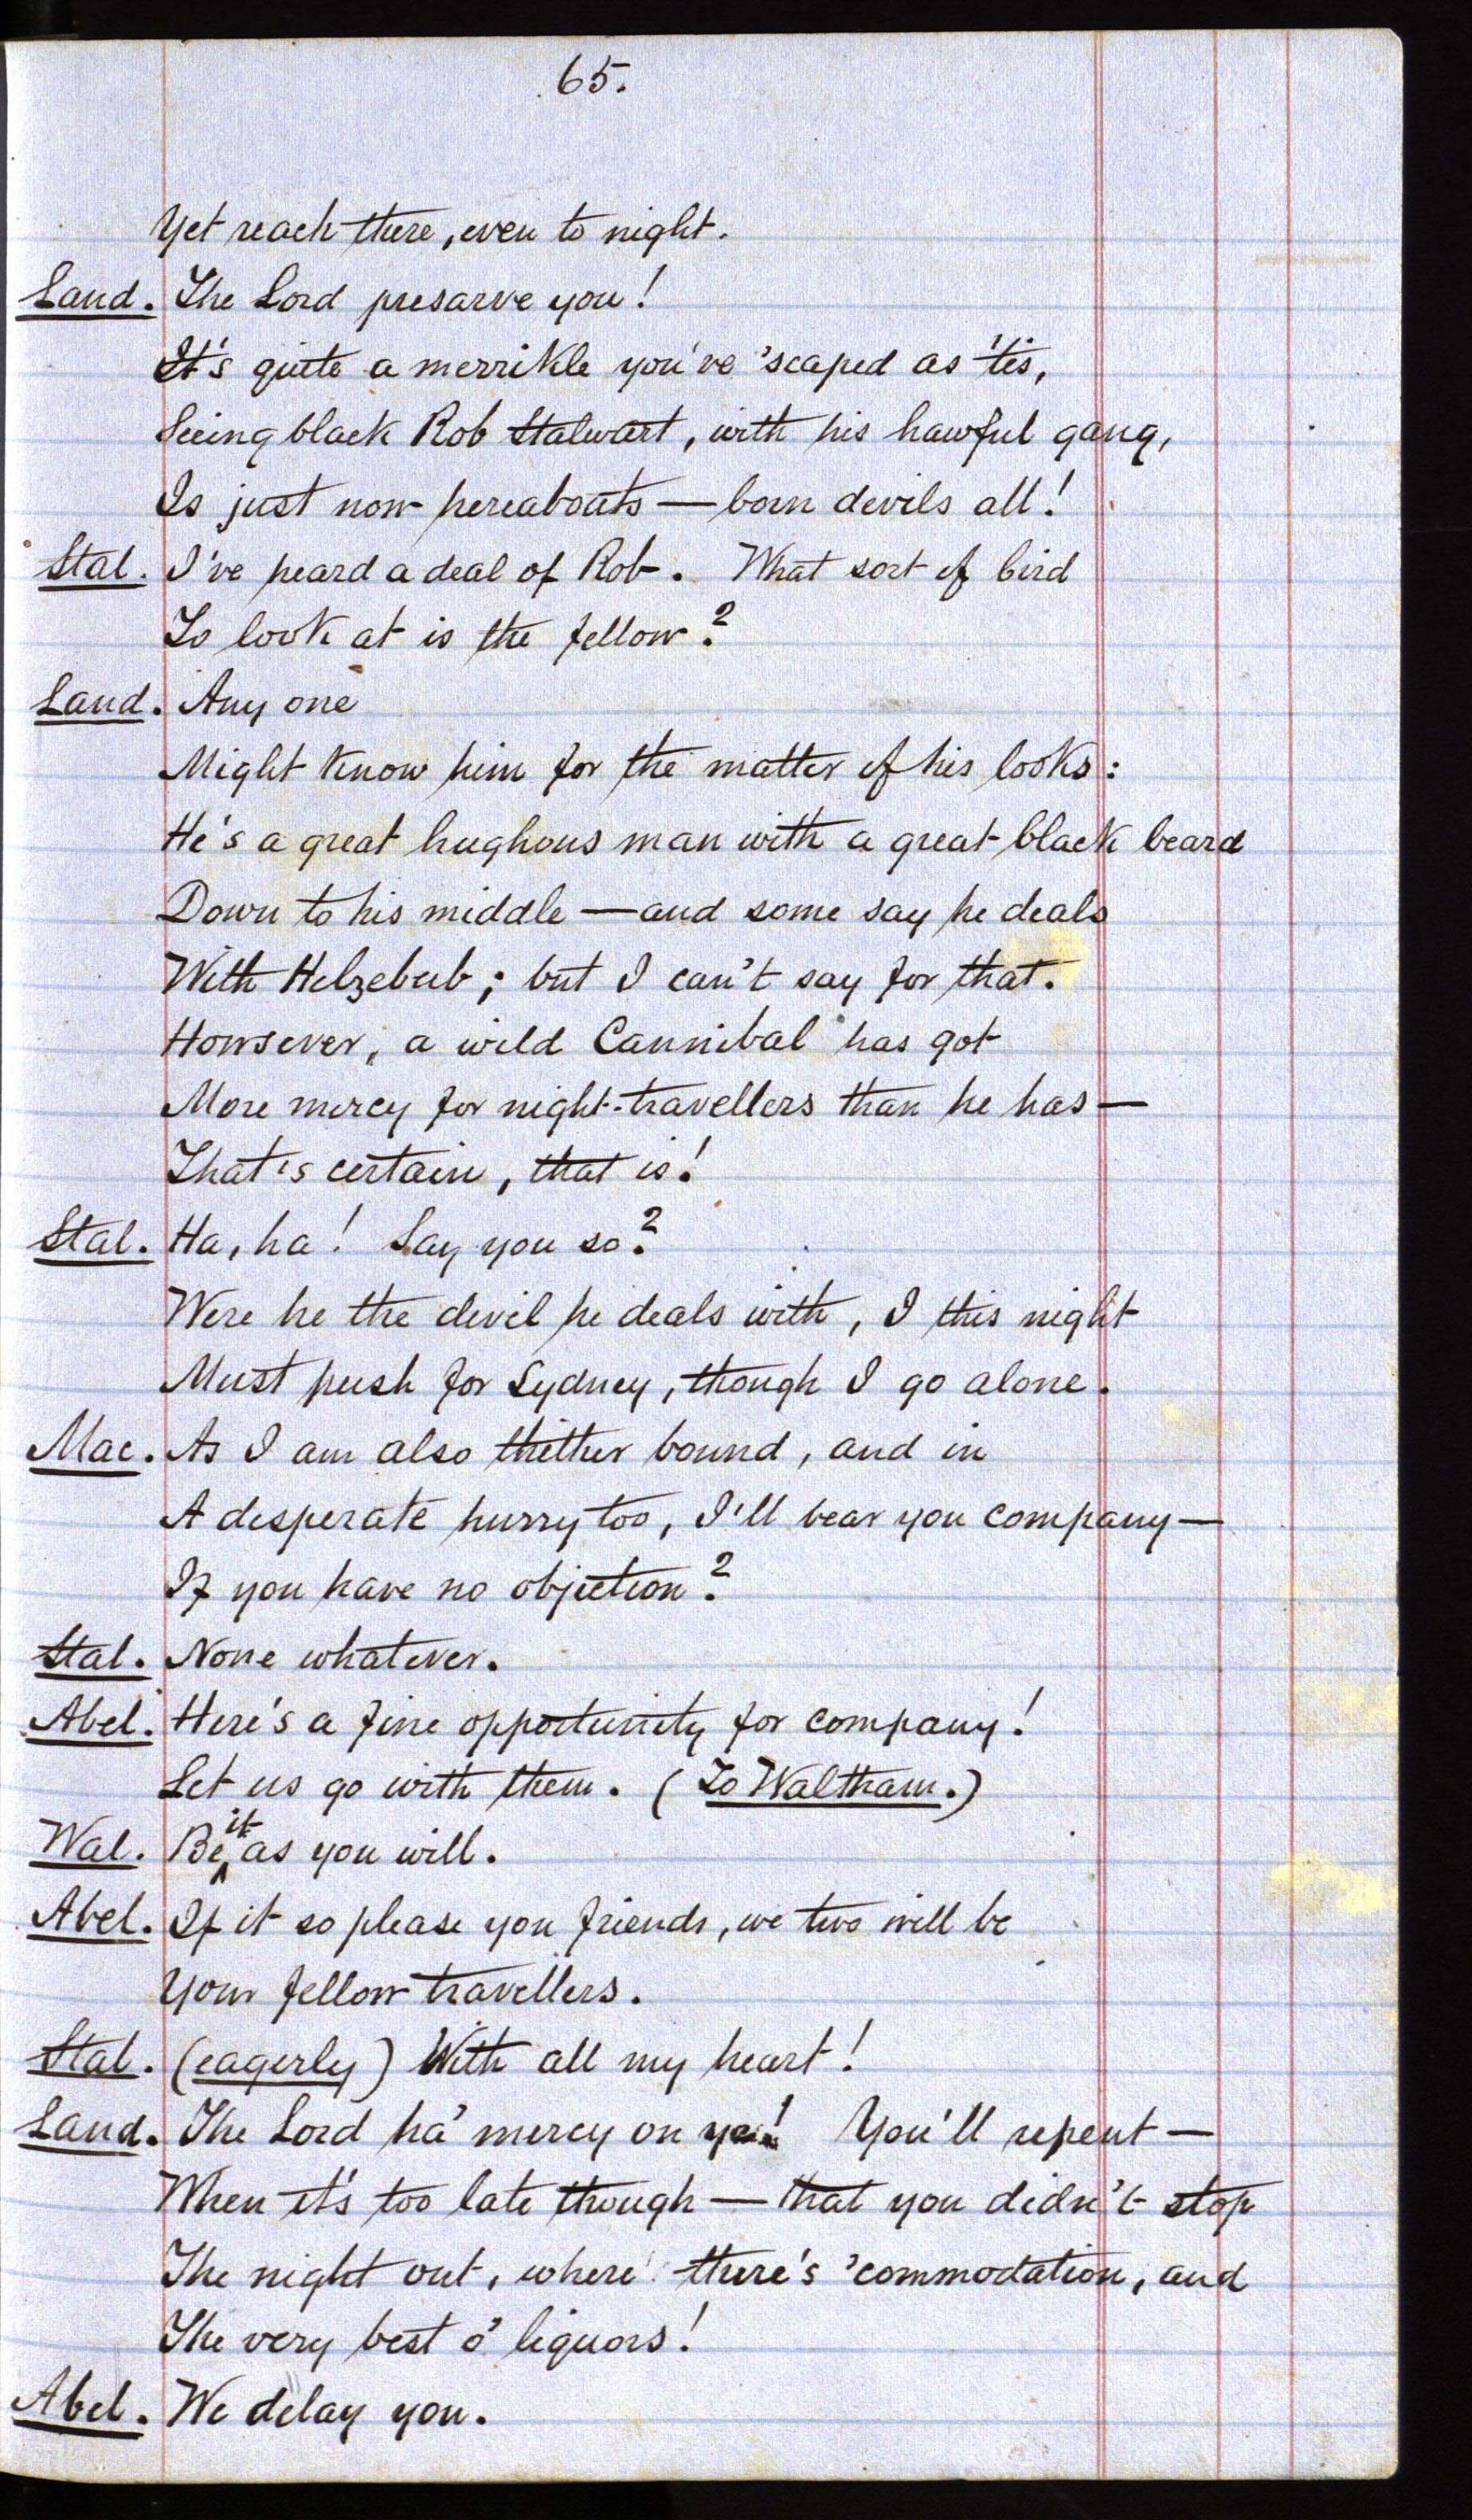 65.
Yet reach there, even to night.
Land. The Lord presarve you!
It's quite a merrikle you've 'scaped as 'tis,
Seeing black Rob Stalwart, with his hawful gang,
Is just now hereabouts — born devils all!
Stal. I've heard a deal of Rob. What sort of bird
To look at is the fellow?
Land. Any one
Might know him for the matter of his looks:
He's a great hughous man with a great black beard
Down to his middle — and some say he deals
With Helzebub; but I can't say for that.
Howsever, a wild Cannibal has got
More mercy for night-travellers than he has —
That's certain, that is!
Stal. Ha, ha! Say you so?
Were he the devil he deals with, I this night
Must push for Sydney, though I go alone.
Mac. As I am also thither bound, and in
A desperate hurry too, I'll bear you company —
If you have no objection?
Stal. None whatever.
Abel. Here's a fine opportunity for company!
Let us go with them. (To Waltham.)
Wal. Be it as you will.
Abel. If it so please you friends, we two will be
Your fellow travellers.
Stal. (eagerly) With all my heart!
Land. The Lord ha' mercy on you! You'll repent —
When it's too late though — that you didn't stop
The night out, where there's 'commodation, and
The very best o' liquors!
Abel. We delay you.